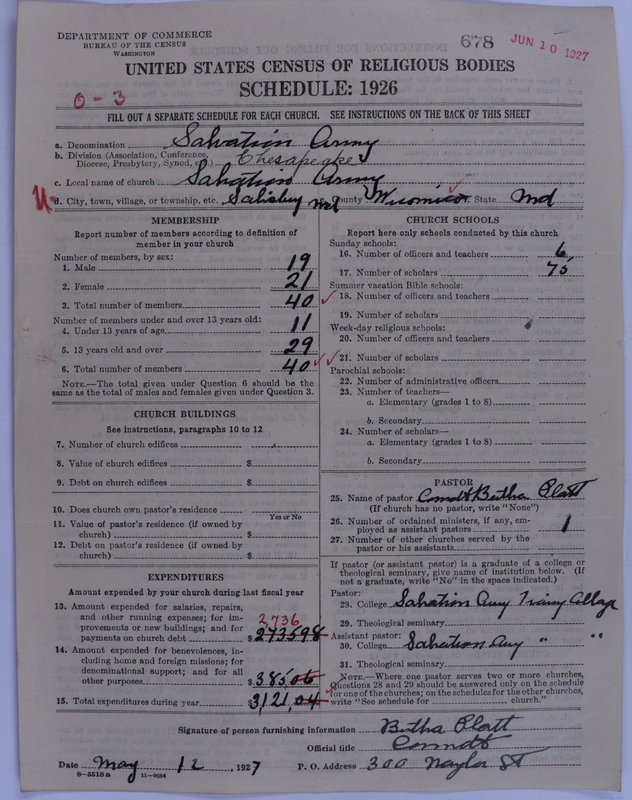 DEPARTMENT OF COMMERCE
BUREAU OF THE CENSUS
WASHINGTON
678
JUN 10 1927
UNITED STATES CENSUS OF RELIGIOUS BODIES
SCHEDULE: 1926
0-3
FILL OUT A SEPARATE SCHEDULE FOR EACH CHURCH. SEE INSTRUCTIONS ON THE BACK OF THIS SHEET
a. Denomination Salvation Army
b. Division (Association, Conference, Diocese, Presbytery, Synod, etc.) Chesapeake
c. Local name of church Salvation Army
d. City, town, village, or township, etc. Salisbury Md County Wicomico State Md
MEMBERSHIP
Report number of members according to definition of
member in your church
Number of members, by sex:
1. Male 19
2. Female 21
3. Total number of members 40
Number of members under and over 13 years old:
4. Under 13 years of age 11
5. 13 years old and over 29
6. Total number of members 40
NOTE.—The total given under Question 6 should be
same as the total of males and females given under Question 3.
CHURCH BUILDINGS
See instructions, paragraphs 10 to 12
7. Number of church edifices
8. Value of church edifices $
9. Debt on church edifices $
10. Does church own pastor's residence
Yes or No
11. Value of pastor's residence (if owned by
church) $
12. Debt on pastor's residence (if owned by
church) $
EXPENDITURES
Amount expended by your church during last fiscal year
13. Amount expended for salaries, repairs,
and other running expenses; for im- 2,736
provements or new buildings; and for
payments on church debt $ 273598
14. Amount expended for benevolences, in-
cluding home and foreign missions; for
denominational support; and for all
other purposes $ 385,06
15. Total expenditures during year $ 3121,04
CHURCH SCHOOLS
Report here only schools conducted by this church
Sunday schools:
16. Number of officers and teachers 6
17. Number of scholars 75
Summer vacation Bible schools:
18. Number of officers and teachers
19. Number of scholars
Week-day religious schools:
20. Number of officers and teachers
21. Number of scholars
Parochial schools:
22. Number of administrative officers
23. Number of teachers—
a. Elementary (grades 1 to 8)
b. Secondary
24. Number of scholars—
a. Elementary (grades 1 to 8)
b. Secondary
PASTOR
25. Name of pastor Comdt Bertha Platt
(If church has no pastor, write "None")
26. Number of ordained ministers, if any, em-
ployed as assistant pastors 1
27. Number of other churches served by the
pastor or his assistants
If pastor (or assistant pastor) is a graduate of a college or
theological seminary, give name of institution below. (If
not a graduate, write "No" in the space indicated.)
Pastor:
28. College Salvation Army Training College
29. Theological seminary
Assistant pastor:
30. College Salvation Army " "
31. Theological seminary
NOTE.—Where one pastor serves two or more churches,
Questions 28 and 29 should be answered only on the schedule
for one of the churches; on the schedules for the other churches,
write "See schedule for church."
Signature of person furnishing information Bertha Platt
Official title Comdt
Date May 12, 1927 P. O. Address 300 Naylor St
8-5518a 11-9084